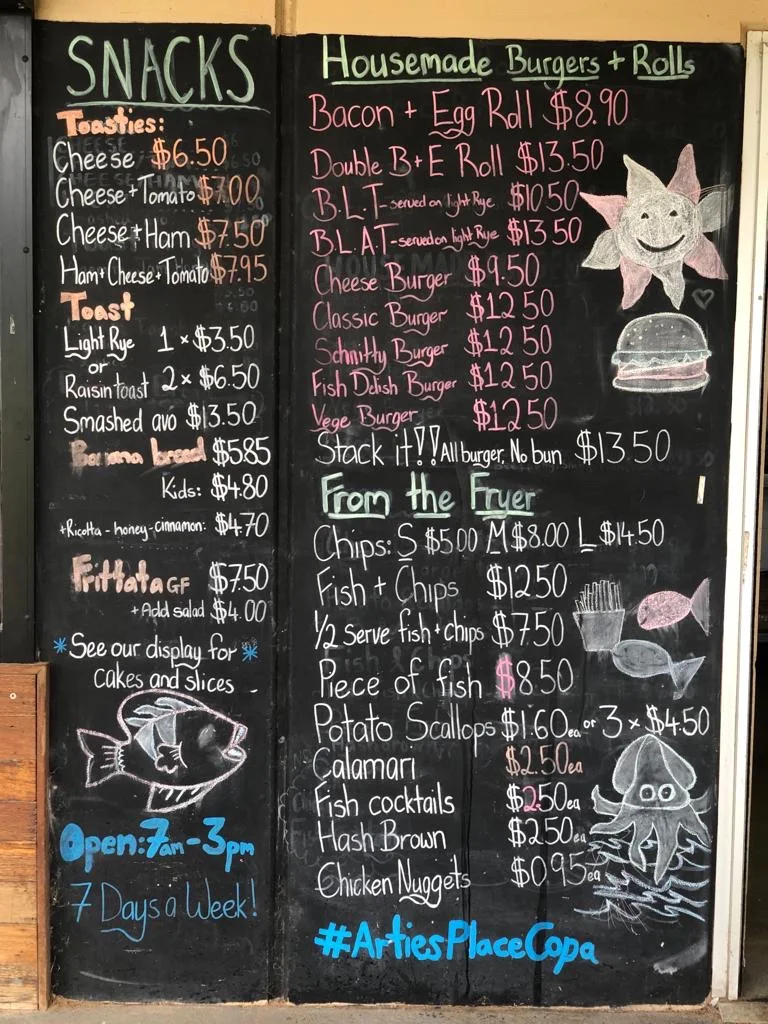 SNACKS
Toasties:
Cheese $6.50
Cheese + Tomato $7.00
Cheese + Ham $7.50
Ham + Cheese + Tomato $7.95
Toast
Light Rye 1 x $3.50
or
Raisin toast 2 x $6.50
Smashed avo $13.50
Banana bread $5.85
Kids: $4.80
+ Ricotta - honey - cinnamon: $4.70
Frittata GF $7.50
+ Add salad $4.00
*See our display for *
cakes and slices
Open: 7am - 3pm
7 Days a Week!
Housemade Burgers + Rolls
Bacon + Egg Roll $8.90
Double B + E Roll $13.50
B.L.T - served on light Rye $10.50
B.L.A.T - served on light Rye $13.50
Cheese Burger $9.50
Classic Burger $12.50
Schnitty Burger $12.50
Fish Delish Burger $12.50
Vege Burger $12.50
Stack it!! All burger, No bun $13.50
From the Fryer
Chips: S $5.00 M $8.00 L $14.50
Fish + Chips $12.50
1/2 Serve fish + chips $7.50
Piece of fish $8.50
Potato Scallops $1.60ea or 3 x $4.50
Calamari $2.50ea
Fish cocktails $2.50ea
Hash Brown $2.50ea
Chicken Nuggets $0.95ea
#ArtiesPlaceCopa